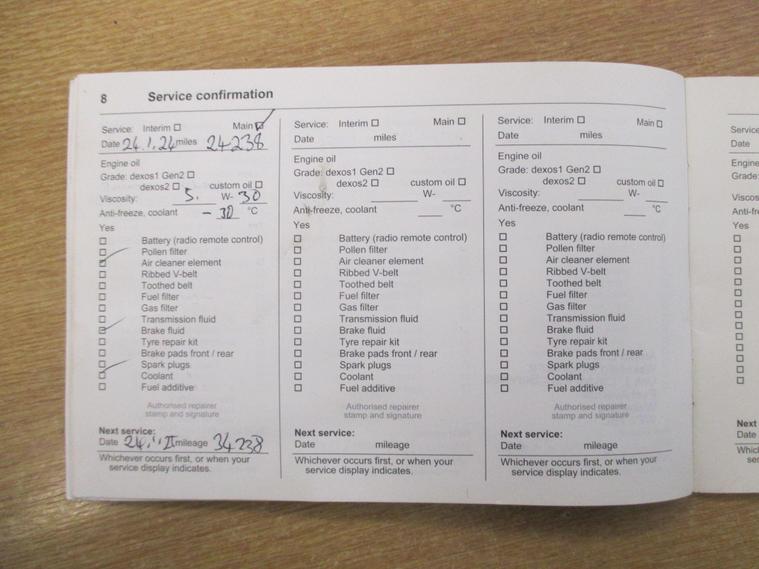 8 Service confirmation
Service: Interim ☐ Main ☑
Date 24.1.24 miles 24238
Engine oil
Grade: dexos1 Gen2 ☐
dexos2 ☐ custom oil ☐
Viscosity: 5. W- 30
Anti-freeze, coolant - 30 °C
Yes
☐ Battery (radio remote control)
☐ Pollen filter
☑ Air cleaner element
☐ Ribbed V-belt
☐ Toothed belt
☐ Fuel filter
☐ Gas filter
☐ Transmission fluid
☑ Brake fluid
☐ Tyre repair kit
☐ Brake pads front / rear
☐ Spark plugs
☑ Coolant
☐ Fuel additive
Authorised repairer
stamp and signature
Next service:
Date mileage 34238
Whichever occurs first, or when your
service display indicates.
Service: Interim ☐ Main ☐
Date miles
Engine oil
Grade: dexos1 Gen2 ☐
dexos2 ☐ custom oil ☐
Viscosity: W-
Anti-freeze, coolant °C
Yes
☐ Battery (radio remote control)
☐ Pollen filter
☐ Air cleaner element
☐ Ribbed V-belt
☐ Toothed belt
☐ Fuel filter
☐ Gas filter
☐ Transmission fluid
☐ Brake fluid
☐ Tyre repair kit
☐ Brake pads front / rear
☐ Spark plugs
☐ Coolant
☐ Fuel additive
Authorised repairer
stamp and signature
Next service:
Date mileage
Whichever occurs first, or when your
service display indicates.
Service: Interim ☐ Main ☐
Date miles
Engine oil
Grade: dexos1 Gen2 ☐
dexos2 ☐ custom oil ☐
Viscosity: W-
Anti-freeze, coolant °C
Yes
☐ Battery (radio remote control)
☐ Pollen filter
☐ Air cleaner element
☐ Ribbed V-belt
☐ Toothed belt
☐ Fuel filter
☐ Gas filter
☐ Transmission fluid
☐ Brake fluid
☐ Tyre repair kit
☐ Brake pads front / rear
☐ Spark plugs
☐ Coolant
☐ Fuel additive
Authorised repairer
stamp and signature
Next service:
Date mileage
Whichever occurs first, or when your
service display indicates.
Service
Date
Engine
Grade:
Yes
Next
Date